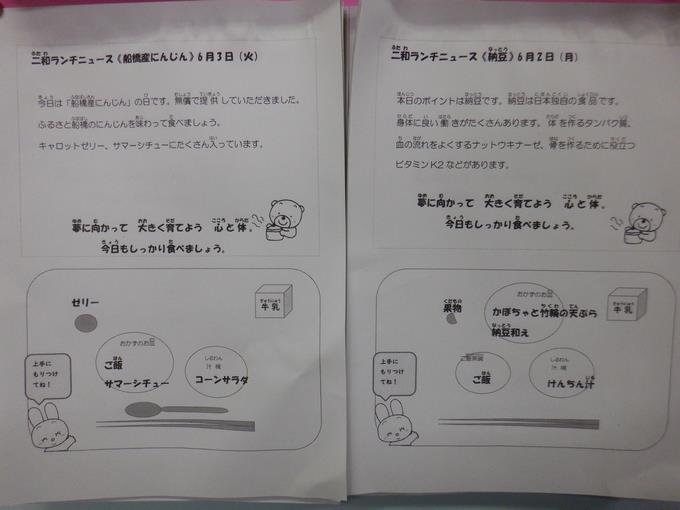 二和ランチニュース《船橋産にんじん》6月3日（火）
今日は「船橋産にんじん」の日です。無償で提供していただきました。
ふるさと船橋のにんじんを味わって食べましょう。
キャロットゼリー、サマーシチューにたくさん入っています。
夢に向かって 大きく育てよう 心と体。
今日もしっかり食べましょう。
ゼリー
牛乳
おかずのお皿
ご飯
サマーシチュー
汁椀
コーンサラダ
上手に
もりつけ
てね！
二和ランチニュース《納豆》6月2日（月）
本日のポイントは納豆です。納豆は日本独自の食品です。
身体に良い働きがたくさんあります。体を作るタンパク質、
血の流れをよくするナットウキナーゼ、骨を作るために役立つ
ビタミンK2などがあります。
夢に向かって 大きく育てよう 心と体。
今日もしっかり食べましょう。
果物
おかずのお皿
かぼちゃと竹輪の天ぷら
納豆和え
牛乳
ご飯茶碗
ご飯
汁椀
けんちん汁
上手に
もりつけ
てね！